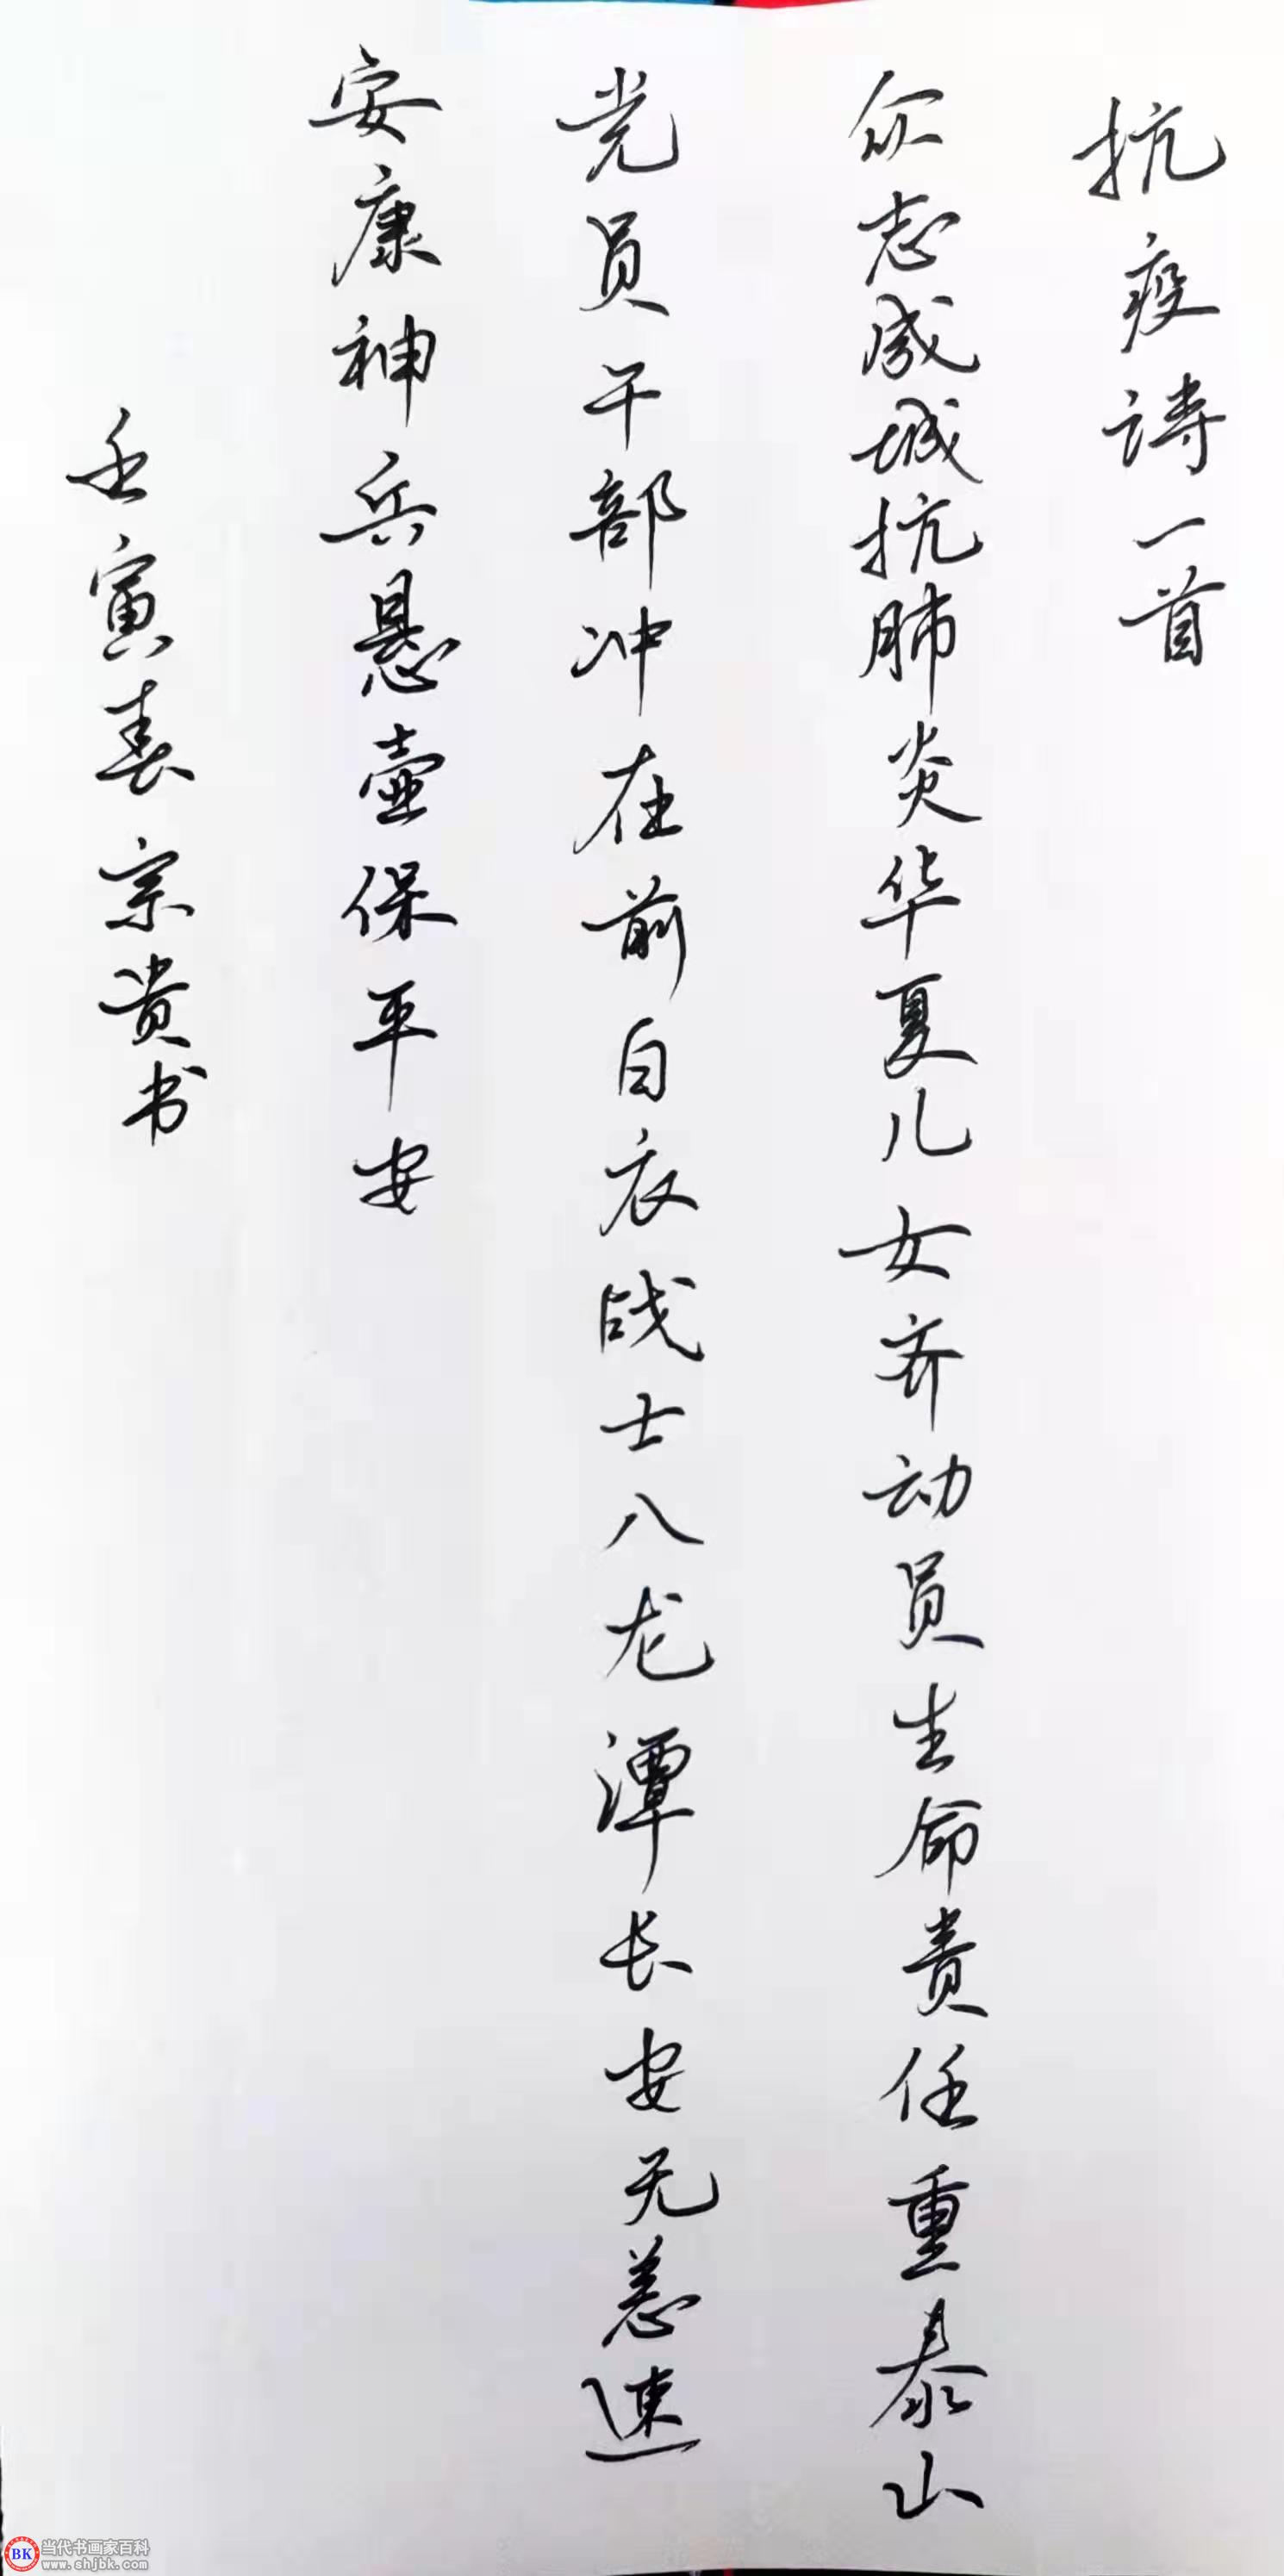 抗疫诗一首
众志成城抗肺炎华夏儿女齐动员生命责任重泰山
党员干部冲在前白衣战士入龙潭长安无恙速
安康神兵悬壶保平安
壬寅春宗贵书
BK
当代书画家百科
www.shjbk.com